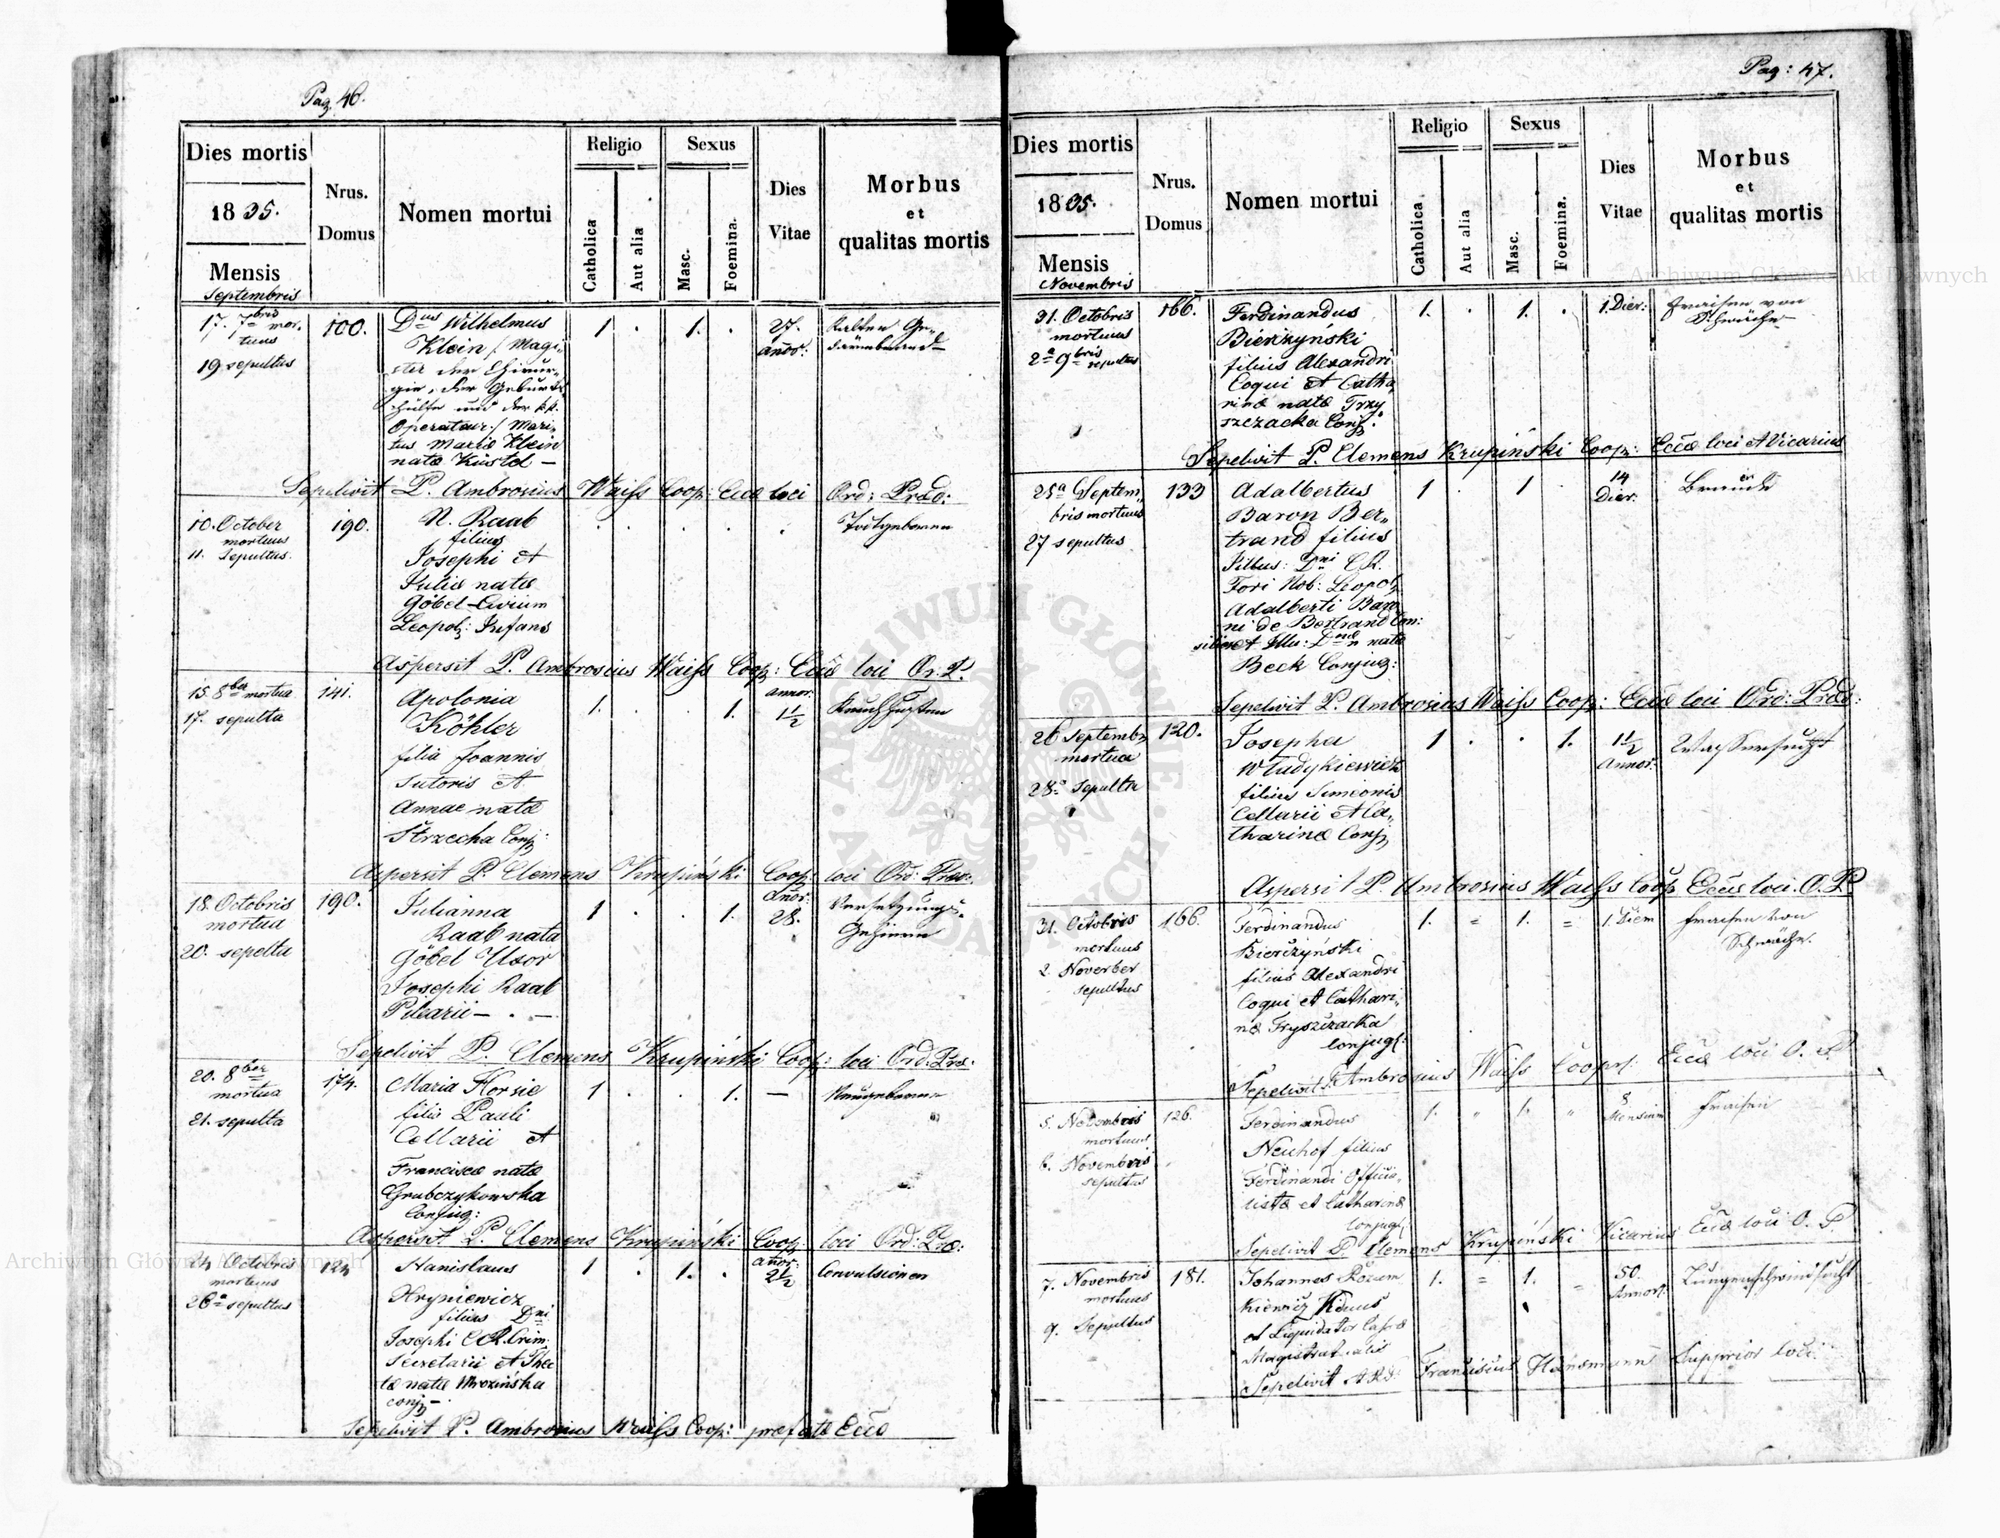 Pag. 46.
Dies mortis
1835.
Mensis
Septembris
Nrus.
Domus
Nomen mortui
Religio
Catholica
Aut alia
Sexus
Masc.
Foemina.
Dies
Vitae
Morbus
et
qualitas mortis
17. 7bris mor-
tuus
19 sepultus
100.
Dnus Wilhelmus
Klein / Magi-
ster der Chirur-
gie, der Geburts
hülfe und der k.k.
Operateur / Mari-
tus Mariæ Klein
natæ Küstel –
1 . 1. .
27.
annor:
Kalter Ge-
därmbrand
Sepelivit P. Ambrosius Waiss Coop: Eccæ loci Ord: Præd:
10. October
mortuus
11. Sepultus.
190.
N. Raab
filius
Josephi et
Juliæ natæ
Göbel Civium
Leopol: Infans
. . . . .
Todtgeboren
Aspersit P. Ambrosius Waiss Coop: Eccæ loci Or. P.
15. 8bra mortua
17. sepulta
141.
Apolonia
Köhler
filia Joannis
Sutoris et
Annae natæ
Strzecha Conj:
1. . . 1.
annor:
1 1/2
Keuchhusten
Aspersit P. Clemens Krupiński Coop: loci Ord: Præ:
18. Octobris
mortua
20. sepelta
190.
Julianna
Raab nata
Göbel Uxor
Josephi Raab
Pilearii – . –
1 . . 1.
Anor:
28.
Versetzungs-
Gehirn
Sepelivit P. Clemens Krupiński Coop: loci Ord: Præ:
20. 8ber
mortua
21. sepulta
174.
Maria Korsie
filia Pauli
Cellarii et
Franciscæ natæ
Grubczykowska
Conjug:
1 . . 1. —
Neugeboren
Aspersit P. Clemens Krupiński Coop: loci Ord: Præ:
24 Octobris
mortuus
26a sepultus
124
Stanislaus
Hryniewicz
filius Dni
Josephi C.R. Crim:
Secretarii et Thec
læ natæ Mrozińska
conj –
1 . 1. .
anor:
2 1/2
Convulsionen
Sepelivit P. Ambrosius Waiss Coop: præfatæ Eccæ
Pag: 47.
Dies mortis
1835.
Mensis
Novembris
Nrus.
Domus
Nomen mortui
Religio
Catholica
Aut alia
Sexus
Masc.
Foemina.
Dies
Vitae
Morbus
et
qualitas mortis
31. Octobris
mortuus
2a 9bris sepultus
166.
Ferdinandus
Bierzyński
filius Alexandri
Coqui et Catha
rinæ natæ Trzy
szczacka Conj.
1. . 1. .
1. Dier:
Fraisen von
Schwäche
Sepelivit P. Clemens Krupiński Coop: Eccæ loci et Vicarius
25a Septem
bris mortuus
27 sepultus
133
Adalbertus
Baron Ber-
trand filius
Illus: Dni C.R.
Fori Nob: Leopol:
Adalberti Baro
ni de Bertrand Con:
siliarii et Illu: Dnæ natæ
Beck Conjug:
1 . 1 .
14
Dier:
Sepelivit P. Ambrosius Waiss Coop: Eccæ loci Ord: Præd:
26 Septembr
mortua
28a sepulta
120.
Josepha
Wludykiewicz
filius Simeonis
Cellarii et Ca-
tharinæ Conj:
1 . . 1.
1 1/2
Annor:
Wassersucht
Aspersit P. Ambrosius Waiss Coop Eccæ loci. O. P.
31. Octobris
mortuus
2. November
sepultus
166.
Ferdinandus
Bierczyński
filius Alexandri
Coqui et Cathari-
næ Tryszczacka
Conjugl:
1. = 1. =
1. Diem
Fraisen von
Schwäche.
Sepelivit P. Ambrosius Waiss Cooprl. Eccæ loci O. P.
5. Novembris
mortuus
6. Novembris
sepultus
126.
Ferdinandus
Neuhof filius
Ferdinandi Officia-
listæ et Catharinæ
Conjugl
1. " 1. "
8
Mensium
Fraisen
Sepelivit P. Clemens Krupiński Vicarius Eccæ loci O. P.
7. Novembris
mortuus
9. Sepultus
181.
Johannes Rozum
kiewicz Viduus
et Liquidator Cassæ
Magistratualis
1. = 1. =
50.
Annor.
Lungenschwindsucht
Sepelivit A.R.D. Franciscus Hansmann Supprior loci
Archiwum Główne Akt Dawnych
Archiwum Główne Akt Dawnych
ARCHIWUM GŁÓWNE AKT DAWNYCH